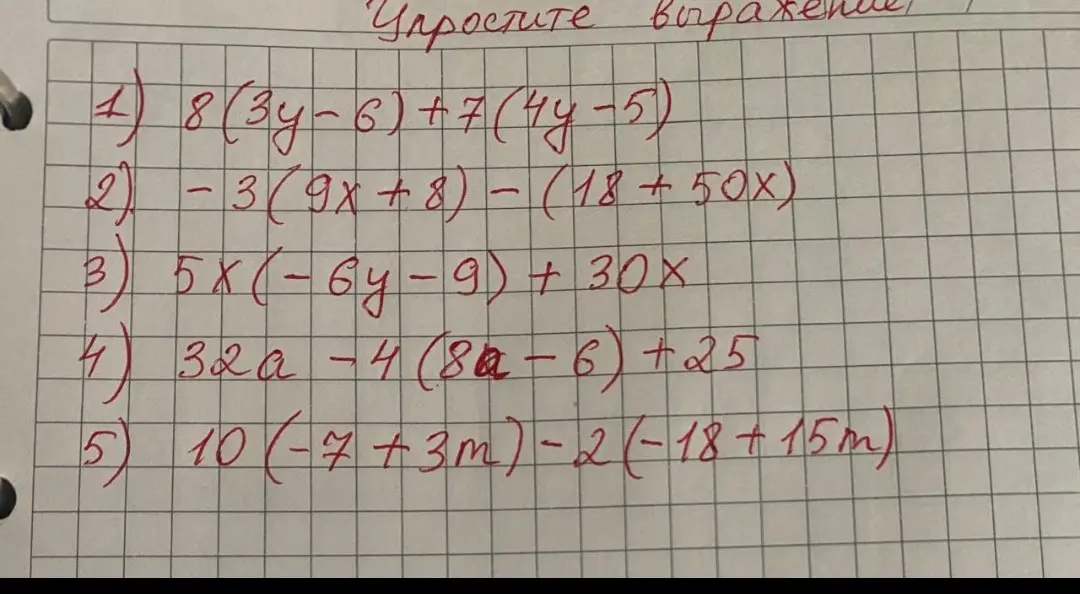 Упростите выражение,
1) 8(3y-6)+7(4y-5)
2) -3(9x+8)-(18+50x)
3) 5x(-6y-9)+30x
4) 32a-4(8a-6)+25
5) 10(-7+3m)-2(-18+15m)